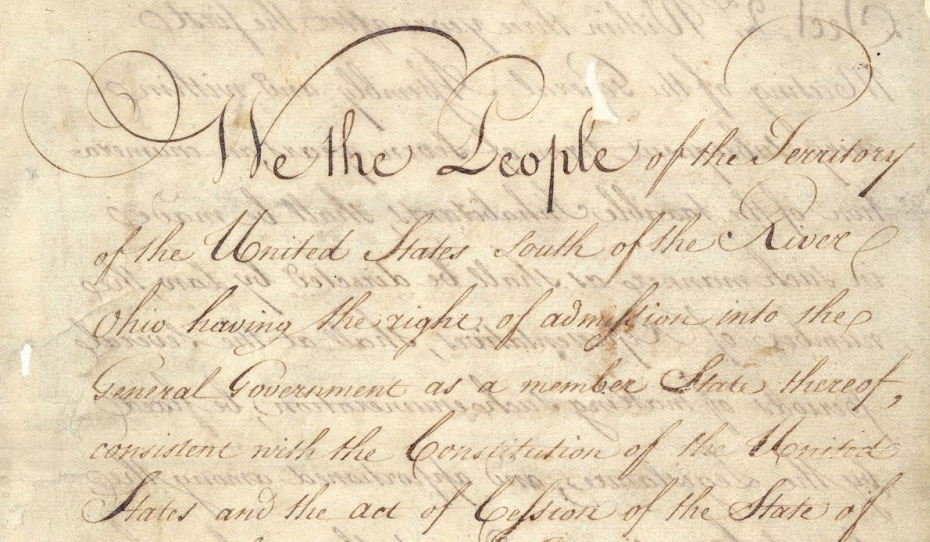 We the People of the Territory
of the United States south of the River
Ohio having the right of admission into the
General Government as a member State thereof,
consistent with the Constitution of the United
States and the act of Cession of the State of